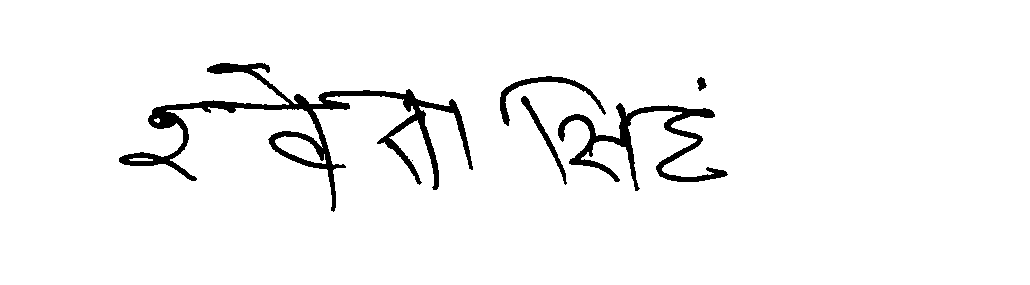 श्वेता सिहं